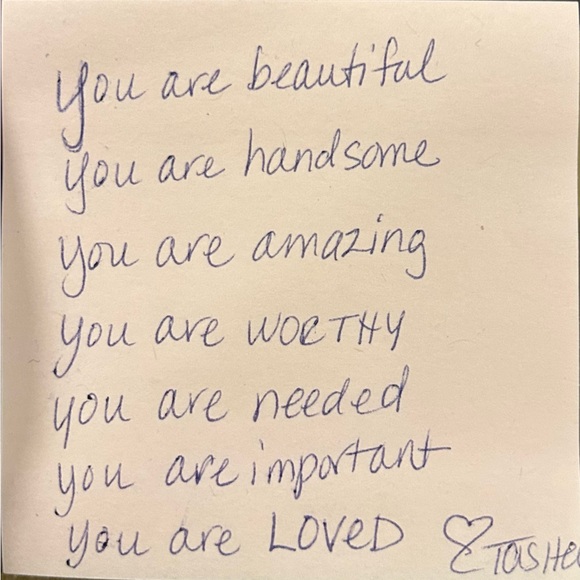 you are beautiful
you are handsome
you are amazing
you are WORTHY
you are needed
you are important
you are LOVED